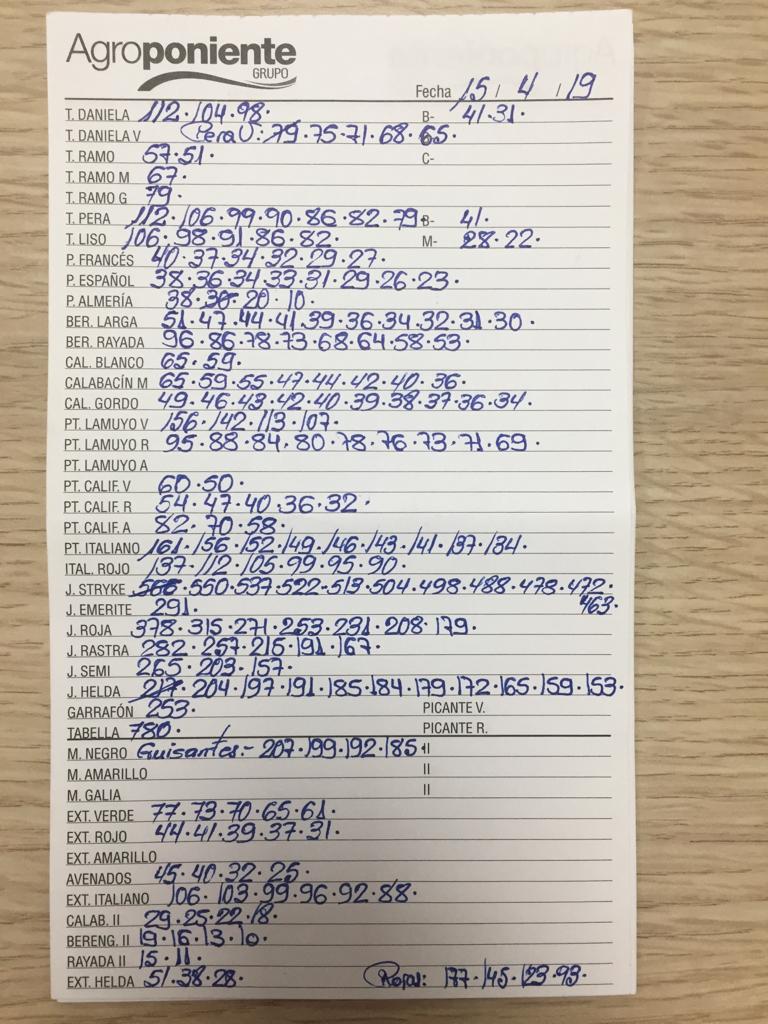 Agroponiente
GRUPO
Fecha 15 / 4 / 19
T. DANIELA 112. 104. 98. B- 41. 31.
T. DANIELA V (Pera V: 79. 75. 71. 68. 65.
T. RAMO 57. 51. C-
T. RAMO M 67.
T. RAMO G 79.
T. PERA 112. 106. 99. 90. 86. 82. 79. B- 41.
T. LISO 106. 98. 91. 86. 82. M- 28. 22.
P. FRANCÉS 40. 37. 34. 32. 29. 27.
P. ESPAÑOL 38. 36. 34. 33. 31. 29. 26. 23.
P. ALMERÍA 38. 30. 20. 10.
BER. LARGA 51. 47. 44. 41. 39. 36. 34. 32. 31. 30.
BER. RAYADA 96. 86. 78. 73. 68. 64. 58. 53.
CAL. BLANCO 65. 59.
CALABACÍN M 65. 59. 55. 47. 44. 42. 40. 36.
CAL. GORDO 49. 46. 43. 42. 40. 39. 38. 37. 36. 34.
PT. LAMUYO V 156. 142. 113. 107.
PT. LAMUYO R 95. 88. 84. 80. 78. 76. 73. 71. 69.
PT. LAMUYO A
PT. CALIF. V 60. 50.
PT. CALIF. R 54. 47. 40. 36. 32.
PT. CALIF. A 82. 70. 58.
PT. ITALIANO 161. 156. 152. 149. 146. 143. 141. 137. 134.
ITAL. ROJO 137. 112. 105. 99. 95. 90.
J. STRYKE 550. 537. 522. 513. 504. 498. 488. 478. 472.
J. EMERITE 291. 463.
J. ROJA 378. 315. 271. 253. 231. 208. 179.
J. RASTRA 282. 257. 215. 191. 167.
J. SEMI 265. 203. 157.
J. HELDA 217. 204. 197. 191. 185. 184. 179. 172. 165. 159. 153.
GARRAFÓN 253. PICANTE V.
TABELLA 780. PICANTE R.
M. NEGRO Guisantes.- 207. 199. 192. 185. II
M. AMARILLO II
M. GALIA II
EXT. VERDE 77. 73. 70. 65. 61.
EXT. ROJO 44. 41. 39. 37. 31.
EXT. AMARILLO
AVENADOS 45. 40. 32. 25.
EXT. ITALIANO 106. 103. 99. 96. 92. 88.
CALAB. II 29. 25. 22. 18.
BERENG. II 19. 16. 13. 10.
RAYADA II 15. 11.
EXT. HELDA 51. 38. 28. Rojas: 177. 145. 123. 93.